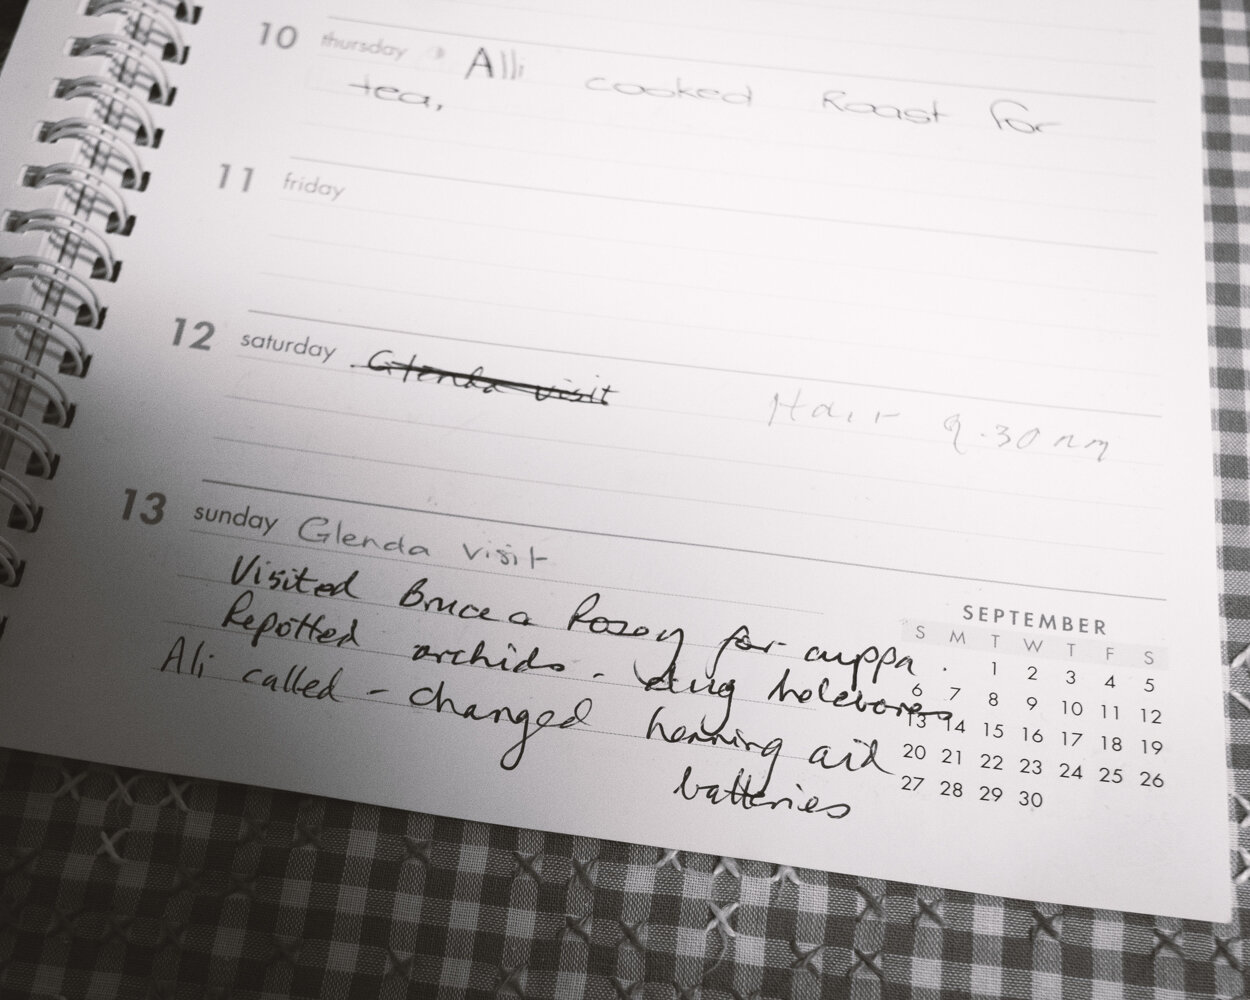 10 thursday Alli cooked Roast for
tea,
11 friday
12 saturday Glenda visit Hair 9.30 am
13 sunday Glenda visit
Visited Bruce a Rosey for cuppa.
Repotted orchids. - dug holes
Ali called - changed hearing aid
batteries
SEPTEMBER
S M T W T F S
1 2 3 4 5
6 7 8 9 10 11 12
13 14 15 16 17 18 19
20 21 22 23 24 25 26
27 28 29 30